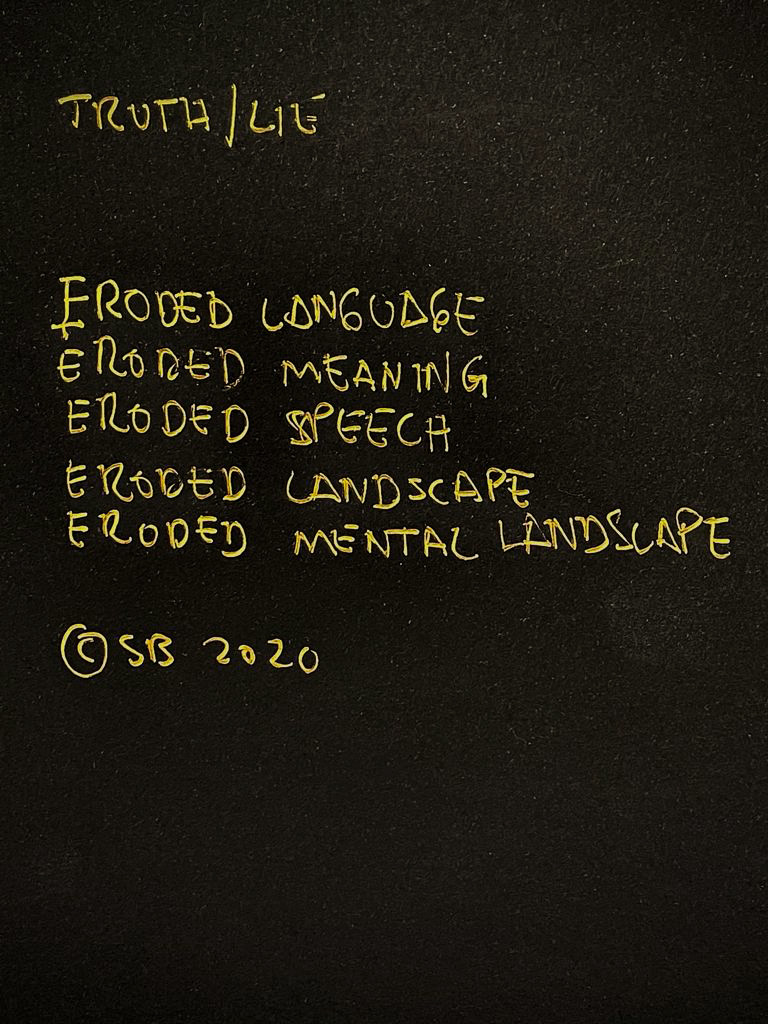 TRUTH/LIE
ERODED LANGUAGE
ERODED MEANING
ERODED SPEECH
ERODED LANDSCAPE
ERODED MENTAL LANDSCAPE
© SB 2020